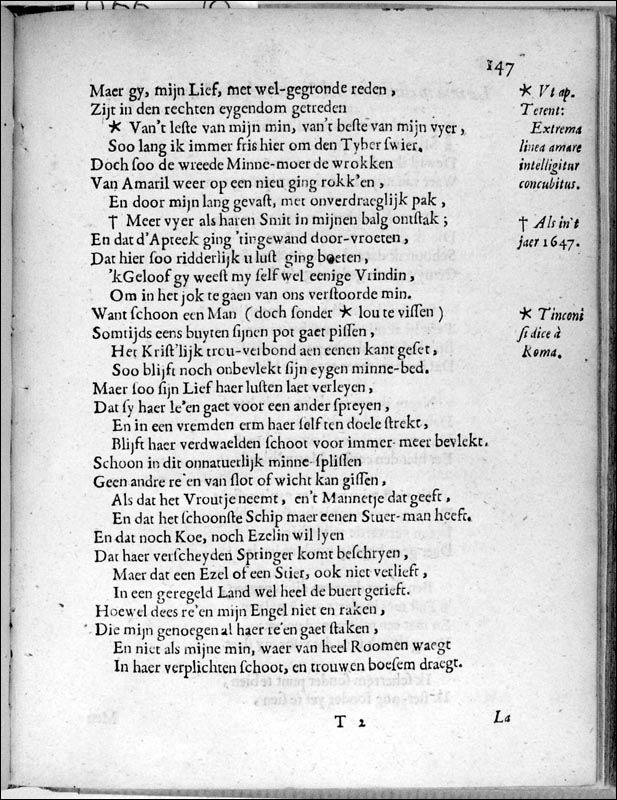 147
Maer gy, mijn Lief, met wel-gegronde reden,
Zijt in den rechten eygendom getreden
* Van't leste van mijn min, van't beste van mijn vyer,
Soo lang ik immer fris hier om den Tyber swier.
Doch soo de wreede Minne-moer de wrokken
Van Amaril weer op een nieu ging rokk'en,
En door mijn lang gevast, met onverdraeglijk pak,
† Meer vyer als haren Smit in mijnen balg ontstak;
En dat d'Apteek ging 'tingewand door-vroeten,
Dat hier soo ridderlijk u lust ging boeten,
'kGeloof gy weest my self wel eenige Vrindin,
Om in het jok te gaen van ons verstoorde min.
Want schoon een Man (doch sonder * lou te vissen)
Somtijds eens buyten sijnen pot gaet pissen,
Het Krist'lijk trou-verbond aen eenen kant geset,
Soo blijft noch onbevlekt sijn eygen minne-bed.
Maer soo sijn Lief haer lusten laet verleyen,
Dat sy haer le'en gaet voor een ander spreyen,
En in een vremden erm haer self ten doele strekt,
Blijft haer verdwaelden schoot voor immer-meer bevlekt.
Schoon in dit onnatuerlijk minne-splissen
Geen andre re'en van slot of wicht kan gissen,
Als dat het Vroutje neemt, en't Mannetje dat geeft,
En dat het schoonste Schip maer eenen Stuer-man heeft.
En dat noch Koe, noch Ezelin wil lyen
Dat haer verscheyden Springer komt beschryen,
Maer dat een Ezel of een Stier, ook niet verlieft,
In een geregeld Land wel heel de buert gerieft.
Hoewel dees re'en mijn Engel niet en raken,
Die mijn genoegen al haer re'en gaet staken,
En niet als mijne min, waer van heel Roomen waegt
In haer verplichten schoot, en trouwen boesem draegt.
* Vt ap.
Terent:
Extrema
linea amare
intelligitur
concubitus.
† Als in't
jaer 1647.
* Tinconi
si dice à
Roma.
T 2
La